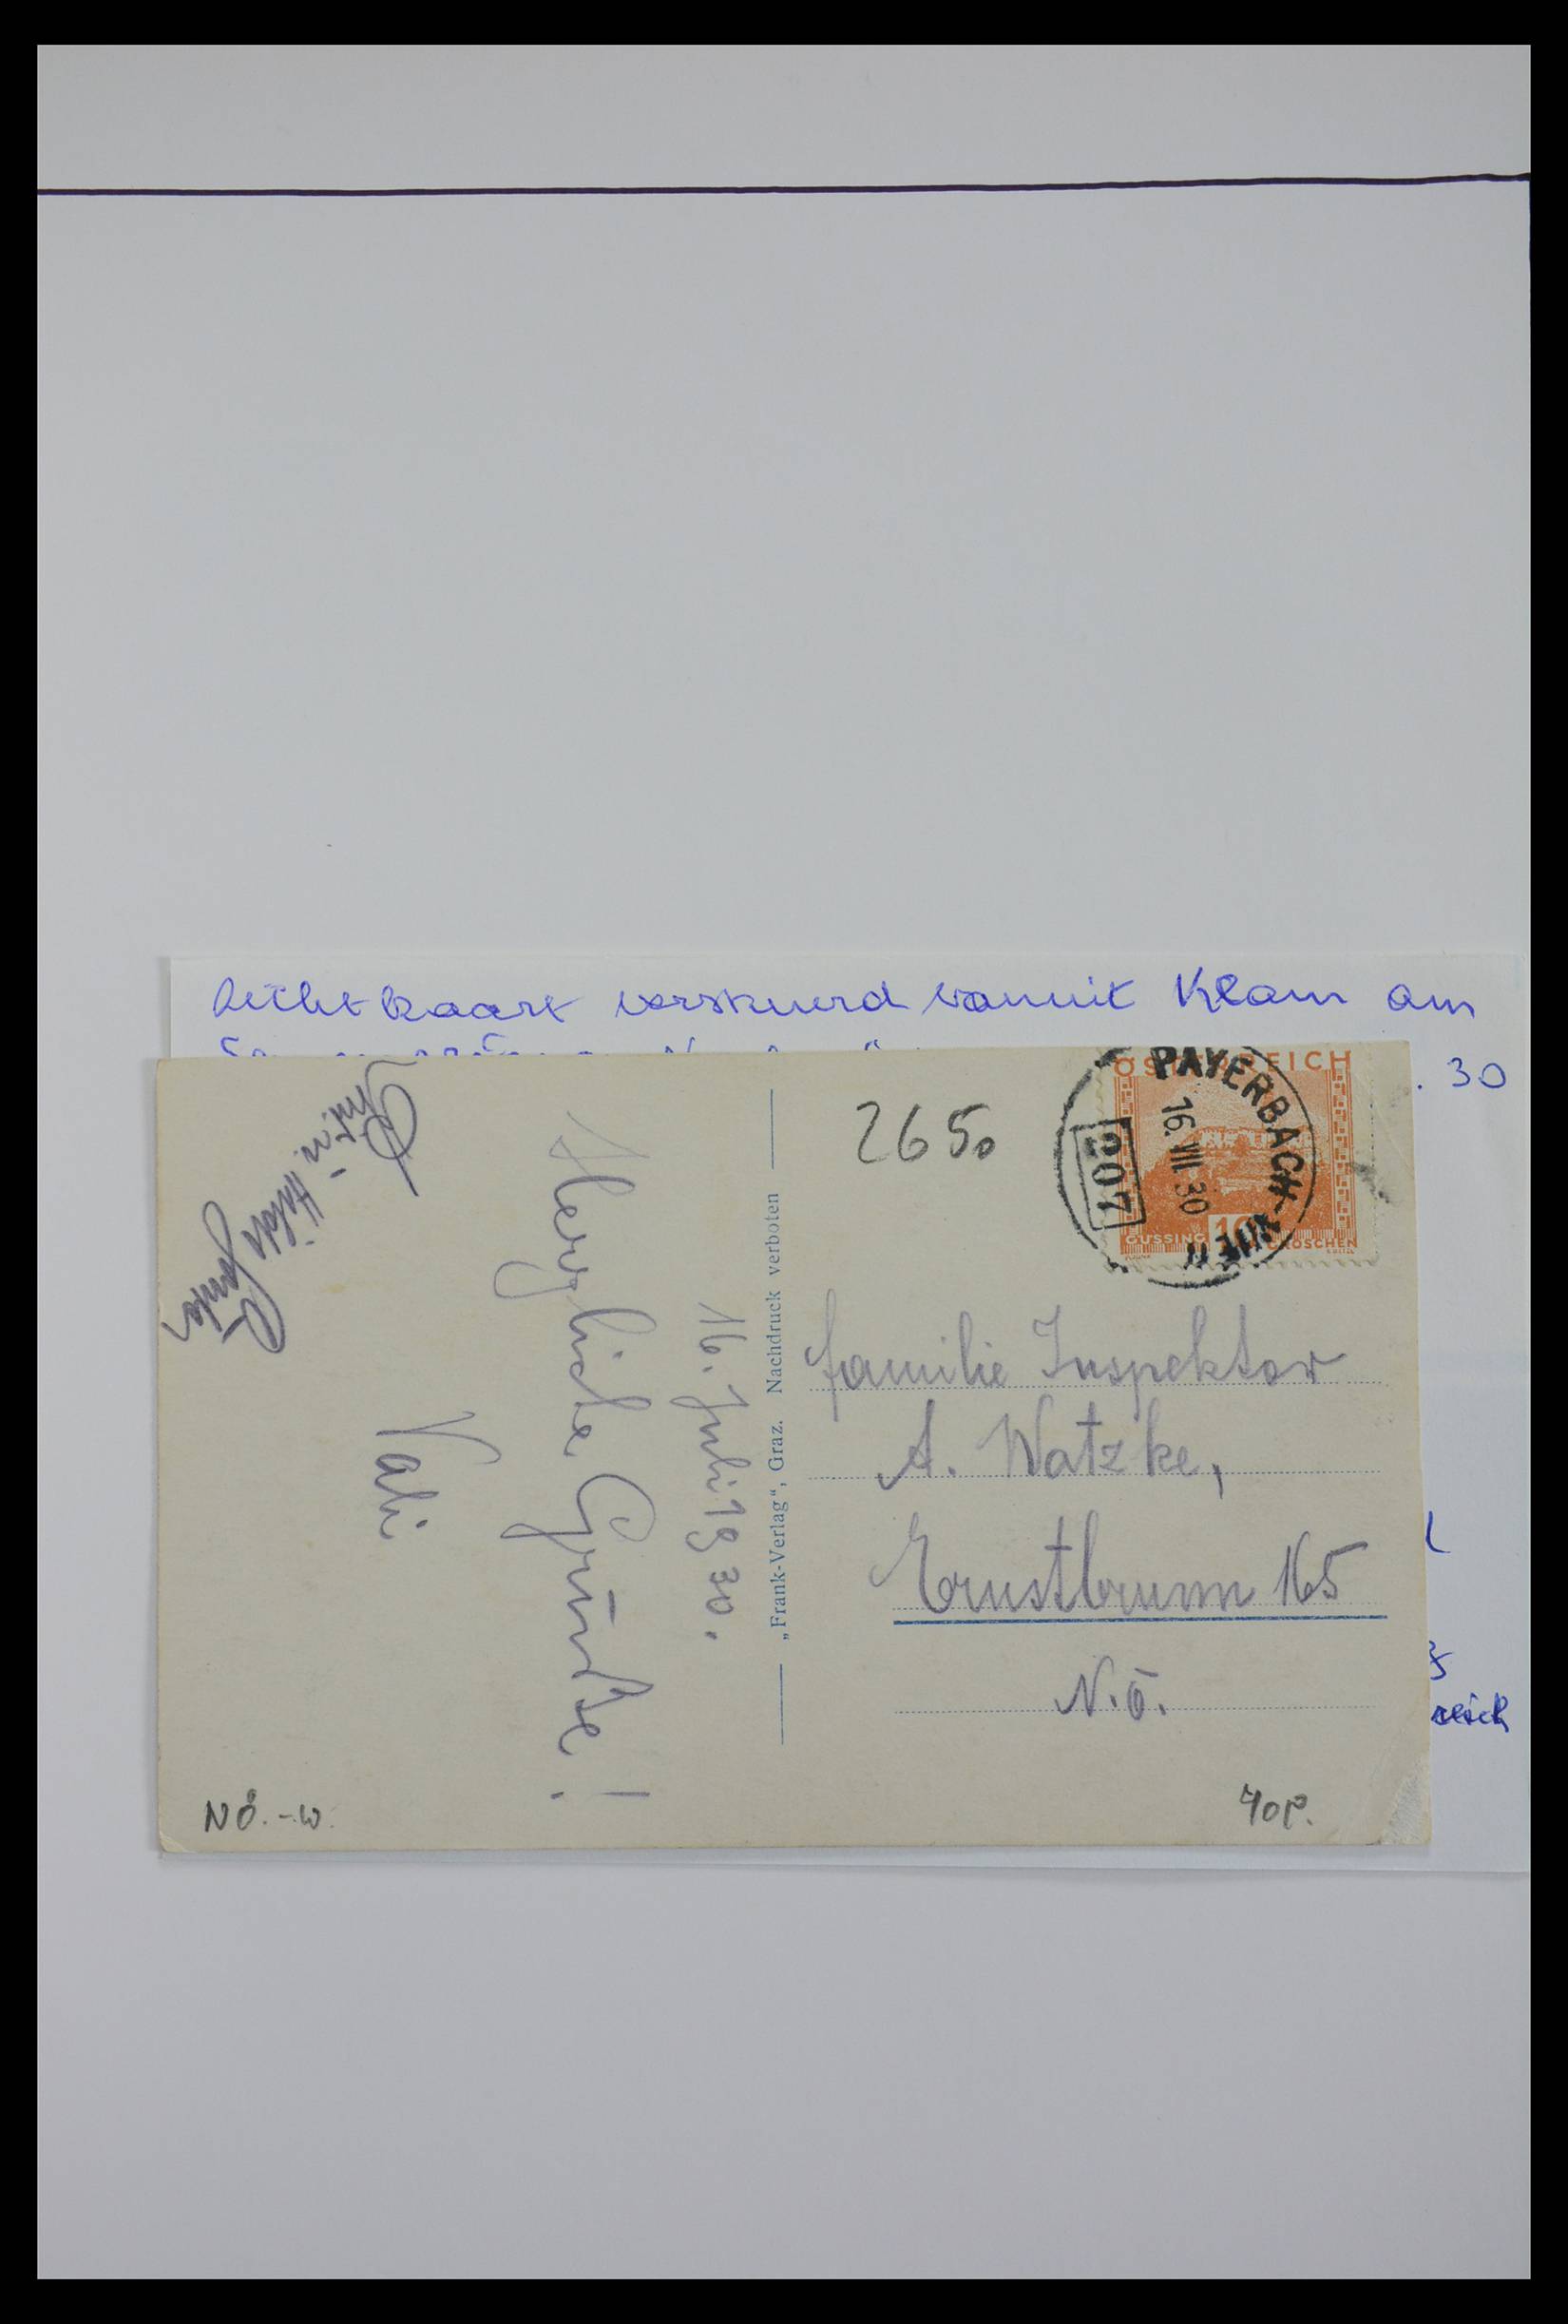 kaart verstuurd vanuit Klam am
. 30
ÖSTERREICH
PAYERBACH
16. VII. 30
207
GÜSSING 10 GROSCHEN
2650
Familie Inspektor
A. Watzke,
Ernstbrunn 165
N.Ö.
„Frank-Verlag“, Graz. Nachdruck verboten
16. Juli 1930.
Herzliche Grüsse!
Vali
Hilde
NÖ.-W.
40P.